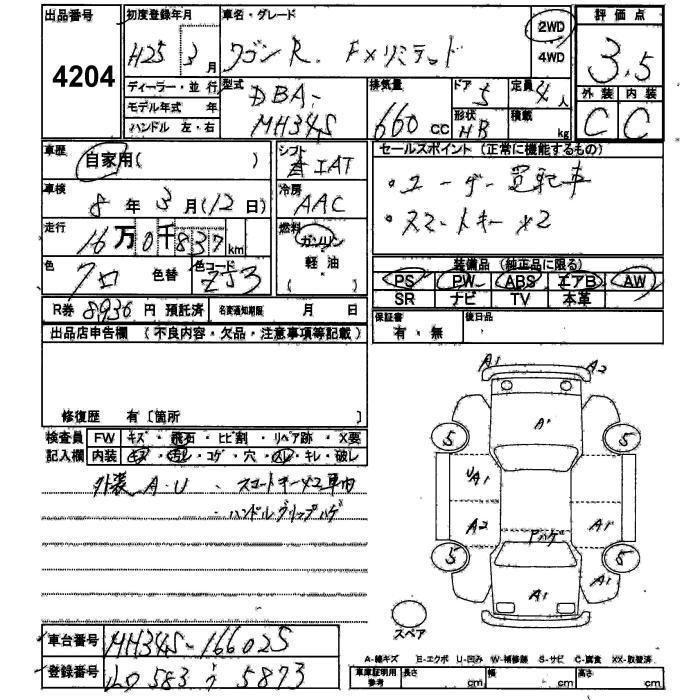 出品番号
4204
初度登録年月
H25 3月
車名・グレード
ワゴンR. FXリミテッド
2WD
4WD
評価点
3.5
外装 内装
C C
ディーラー・並行
モデル年式 年
ハンドル 左・右
型式
DBA-
MH34S
排気量
660 cc
ドア 5
形状 HB
定員 4人
積載 kg
車歴
自家用( )
車検
8年3月(12日)
走行
16万0千837km
色
クロ
色替
色コード
ZJ3
シフト
IAT
冷房
AAC
燃料
ガソリン
軽油
( )
セールスポイント (正常に機能するもの)
・ユーザー買取車
・スマートキー×2
装備品 (純正品に限る)
PS PW ABS エアB AW
SR ナビ TV 本革
保証書
有・無
後日品
R券 8936円 預託済
名変通知期限 月 日
出品店申告欄 (不良内容・欠品・注意事項等記載)
修復歴 有〔箇所 〕
検査員
記入欄
FW キズ・飛石・ヒビ割・リペア跡・X要
内装 キズ・汚レ・コゲ・穴・スレ・キレ・破レ
外装 A・U
・スマートキー×2車内
・ハンドルグリップハゲ
A1 A2
A1
5 5
UA1
A2 A1
Pハゲ
5 5
A1 A1
スペア
車台番号
MH34S-166025
登録番号
583 う 5873
A-線キズ E-エクボ U-凹み W-補修跡 S-サビ C-腐食 XX-取替済
車庫証明用
参考
長さ cm
幅 cm
高さ cm